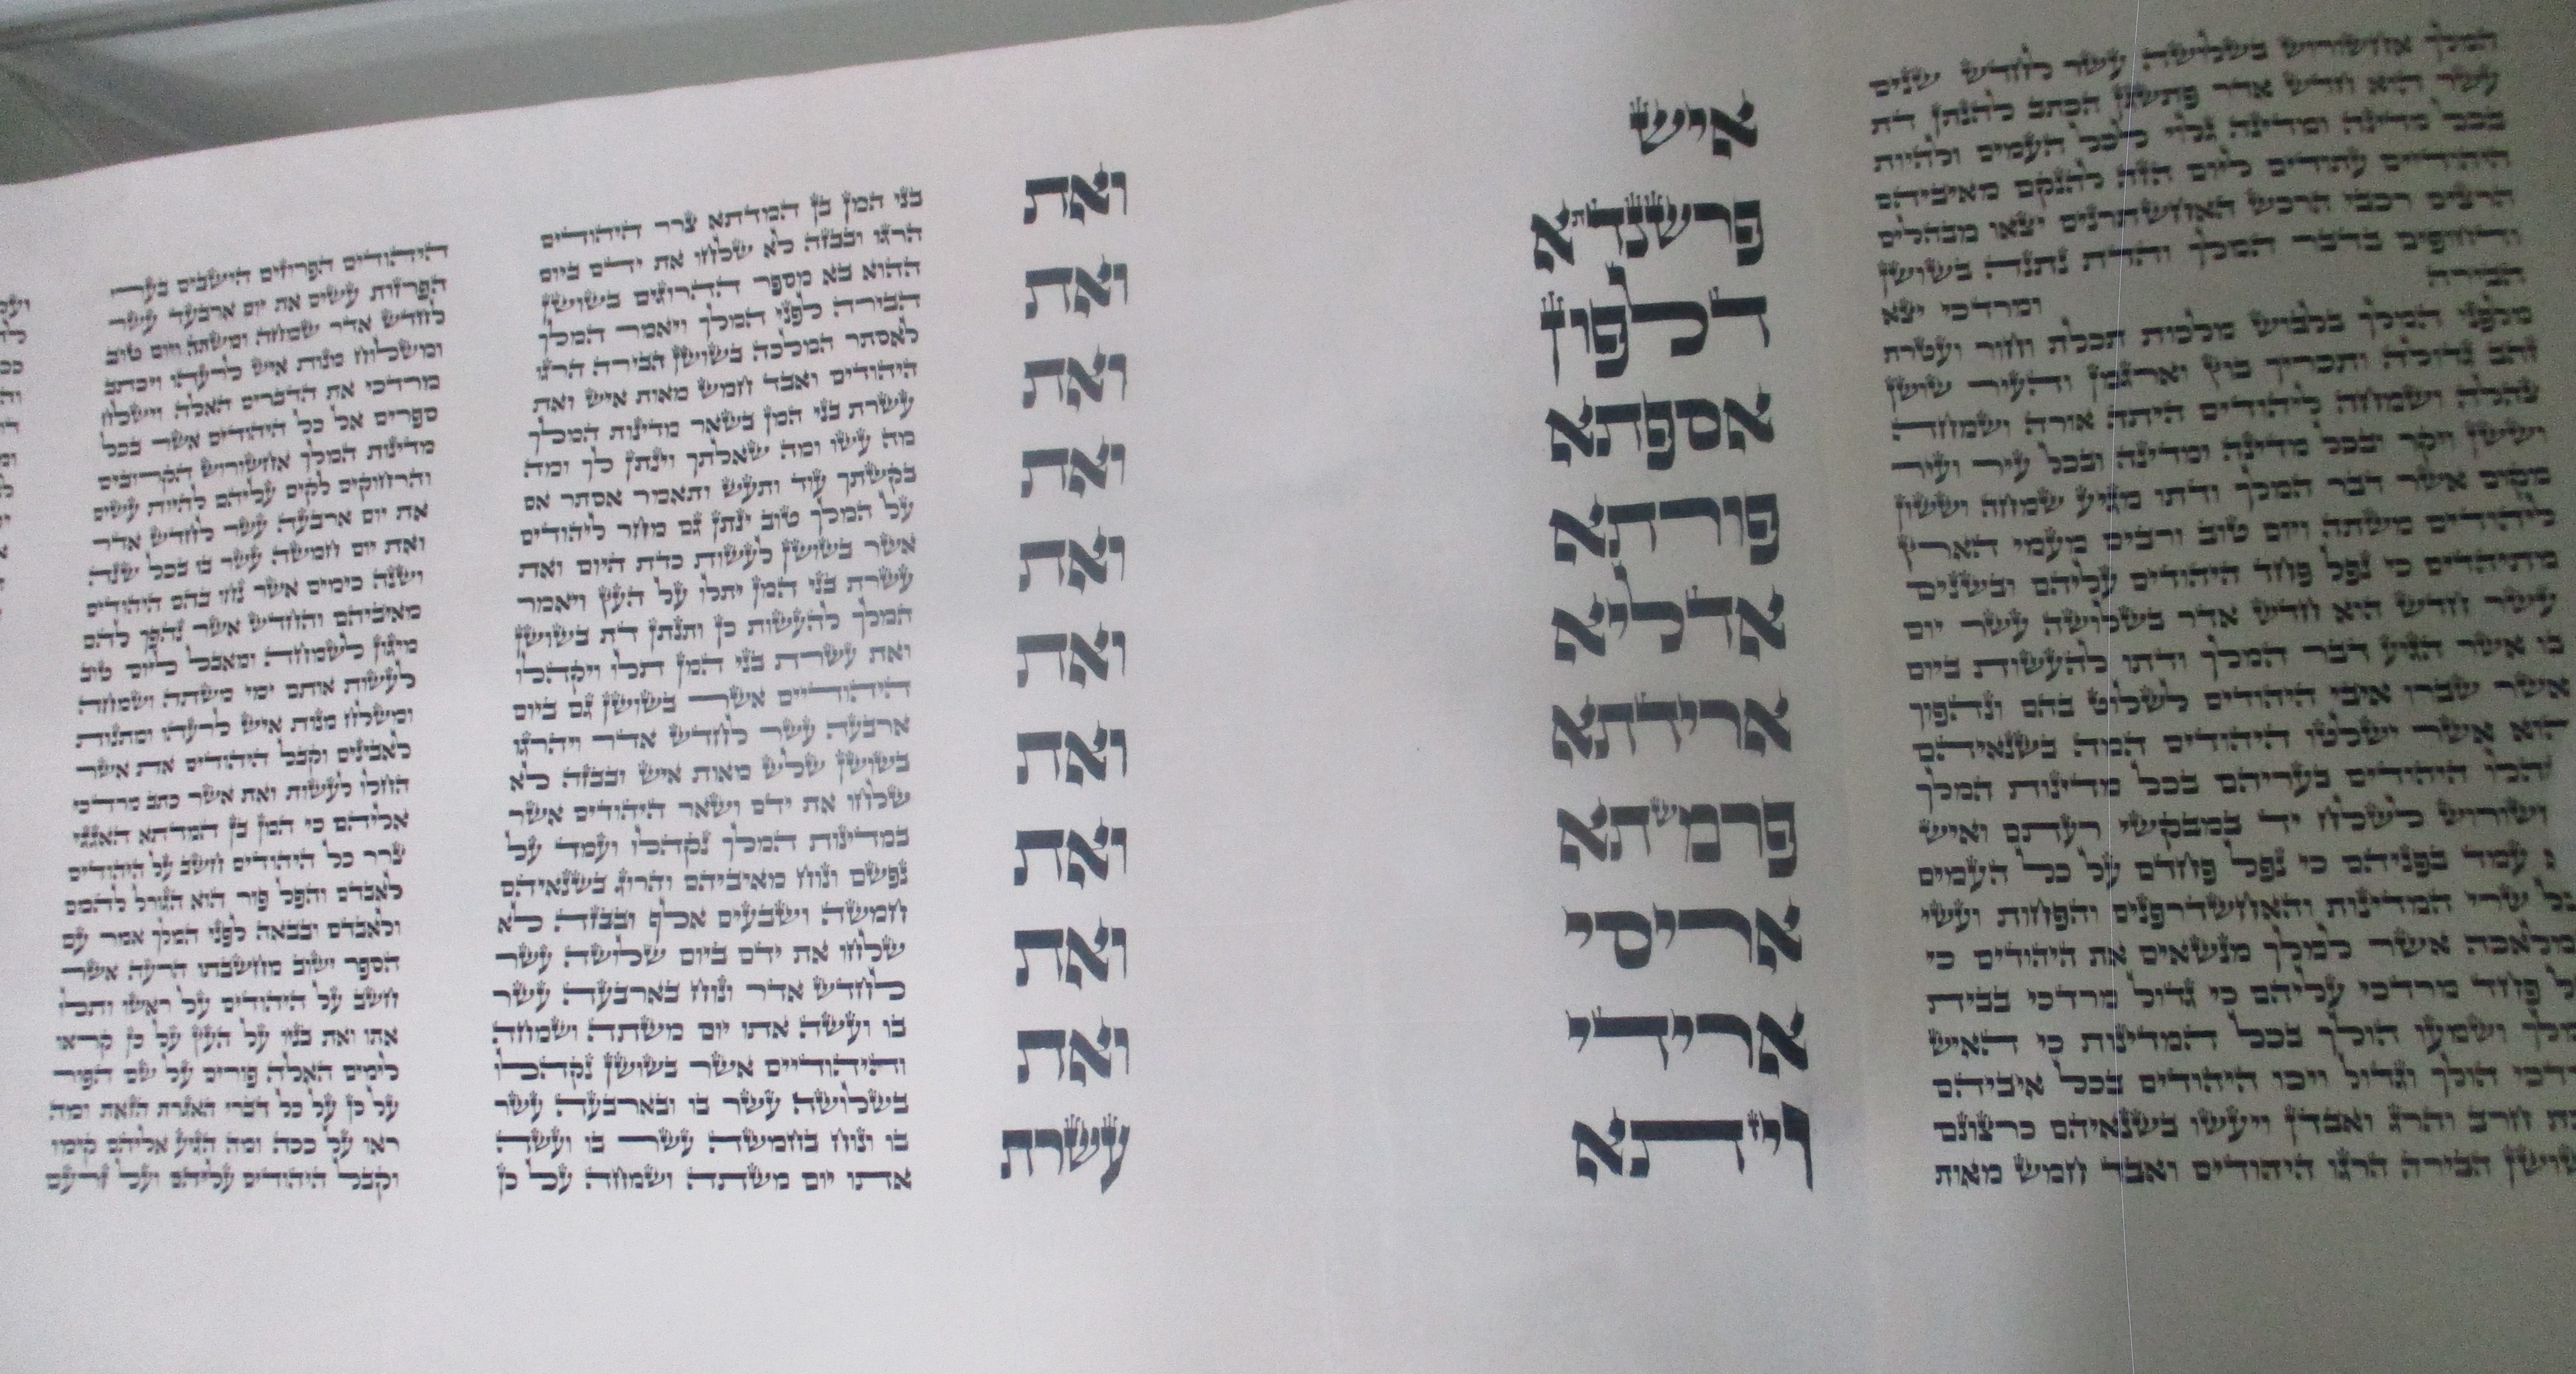 המלך אחשורוש בשלושה עשר לחדש שנים
עשר הוא חדש אדר פתשגן הכתב להנתן דת
בכל מדינה ומדינה גלוי לכל העמים ולהיות
היהודיים עתודים ליום הזה להנקם מאיביהם
הרצים רכבי הרכש האחשתרנים יצאו מבהלים
ודחופים בדבר המלך והדת נתנה בשושן
הבירה ומרדכי יצא
מלפני המלך בלבוש מלכות תכלת וחור ועטרת
זהב גדולה ותכריך בוץ וארגמן והעיר שושן
צהלה ושמחה ליהודים היתה אורה ושמחה
וששן ויקר ובכל מדינה ומדינה ובכל עיר ועיר
מקום אשר דבר המלך ודתו מגיע שמחה וששון
ליהודים משתה ויום טוב ורבים מעמי הארץ
מתיהדים כי נפל פחד היהודים עליהם ובשנים
עשר חדש הוא חדש אדר בשלושה עשר יום
בו אשר הגיע דבר המלך ודתו להעשות ביום
אשר שברו איבי היהודים לשלוט בהם ונהפוך
הוא אשר ישלטו היהודים המה בשנאיהם
היהודים בעריהם בכל מדינות המלך
לשלח יד במבקשי רעתם ואיש
עמד בפניהם כי נפל פחדם על כל העמים
שרי המדינות והאחשדרפנים והפחות ועשי
אשר למלך מנשאים את היהודים כי
פחד מרדכי עליהם כי גדול מרדכי בבית
ושמעו הולך בכל המדינות כי האיש
הולך וגדול ויכו היהודים בכל איביהם
חרב והרג ואבדן ויעשו בשנאיהם כרצונם
הבירה הרגו היהודים ואבד חמש מאות
איש ואת
פרשנדתא ואת
דלפון ואת
אספתא ואת
פורתא ואת
אדליא ואת
ארידתא ואת
פרמשתא ואת
אריסי ואת
ארידי ואת
ויזתא עשרת
בני המן בן המדתא צרר היהודים
הרגו ובבזה לא שלחו את ידם ביום
ההוא בא מספר ההרוגים בשושן
הבירה לפני המלך ויאמר המלך
לאסתר המלכה בשושן הבירה הרגו
היהודים ואבד חמש מאות איש ואת
עשרת בני המן בשאר מדינות המלך
מה עשו ומה שאלתך וינתן לך ומה
בקשתך עוד ותעש ותאמר אסתר אם
על המלך טוב ינתן גם מחר ליהודים
אשר בשושן לעשות כדת היום ואת
עשרת בני המן יתלו על העץ ויאמר
המלך להעשות כן ותנתן דת בשושן
ואת עשרת בני המן תלו ויקהלו
היהודיים אשר בשושן גם ביום
ארבעה עשר לחדש אדר ויהרגו
בשושן שלש מאות איש ובבזה לא
שלחו את ידם ושאר היהודים אשר
במדינות המלך נקהלו ועמד על
נפשם ונוח מאיביהם והרוג בשנאיהם
חמשה ושבעים אלף ובבזה לא
שלחו את ידם ביום שלושה עשר
לחדש אדר ונוח בארבעה עשר
בו ועשה אתו יום משתה ושמחה
והיהודיים אשר בשושן נקהלו
בשלושה עשר בו ובארבעה עשר
בו ונוח בחמשה עשר בו ועשה
אתו יום משתה ושמחה על כן
היהודים הפרוזים הישבים בערי
הפרזות עשים את יום ארבעה עשר
לחדש אדר שמחה ומשתה ויום טוב
ומשלוח מנות איש לרעהו ויכתב
מרדכי את הדברים האלה וישלח
ספרים אל כל היהודים אשר בכל
מדינות המלך אחשורוש הקרובים
והרחוקים לקים עליהם להיות עשים
את יום ארבעה עשר לחדש אדר
ואת יום חמשה עשר בו בכל שנה
ושנה כימים אשר נחו בהם היהודים
מאיביהם והחדש אשר נהפך להם
מיגון לשמחה ומאבל ליום טוב
לעשות אותם ימי משתה ושמחה
ומשלח מנות איש לרעהו ומתנות
לאבינים וקבל היהודים את אשר
החלו לעשות ואת אשר כתב מרדכי
אליהם כי המן בן המדתא האגגי
צרר כל היהודים חשב על היהודים
לאבדם והפל פור הוא הגורל להמם
ולאבדם ובבאה לפני המלך אמר עם
הספר ישוב מחשבתו הרעה אשר
חשב על היהודים על ראשו ותלו
אתו ואת בניו על העץ על כן קראו
לימים האלה פורים על שם הפור
על כן על כל דברי האגרת הזאת ומה
ראו על ככה ומה הגיע אליהם קימו
וקבל היהודים עליהם ועל זרעם